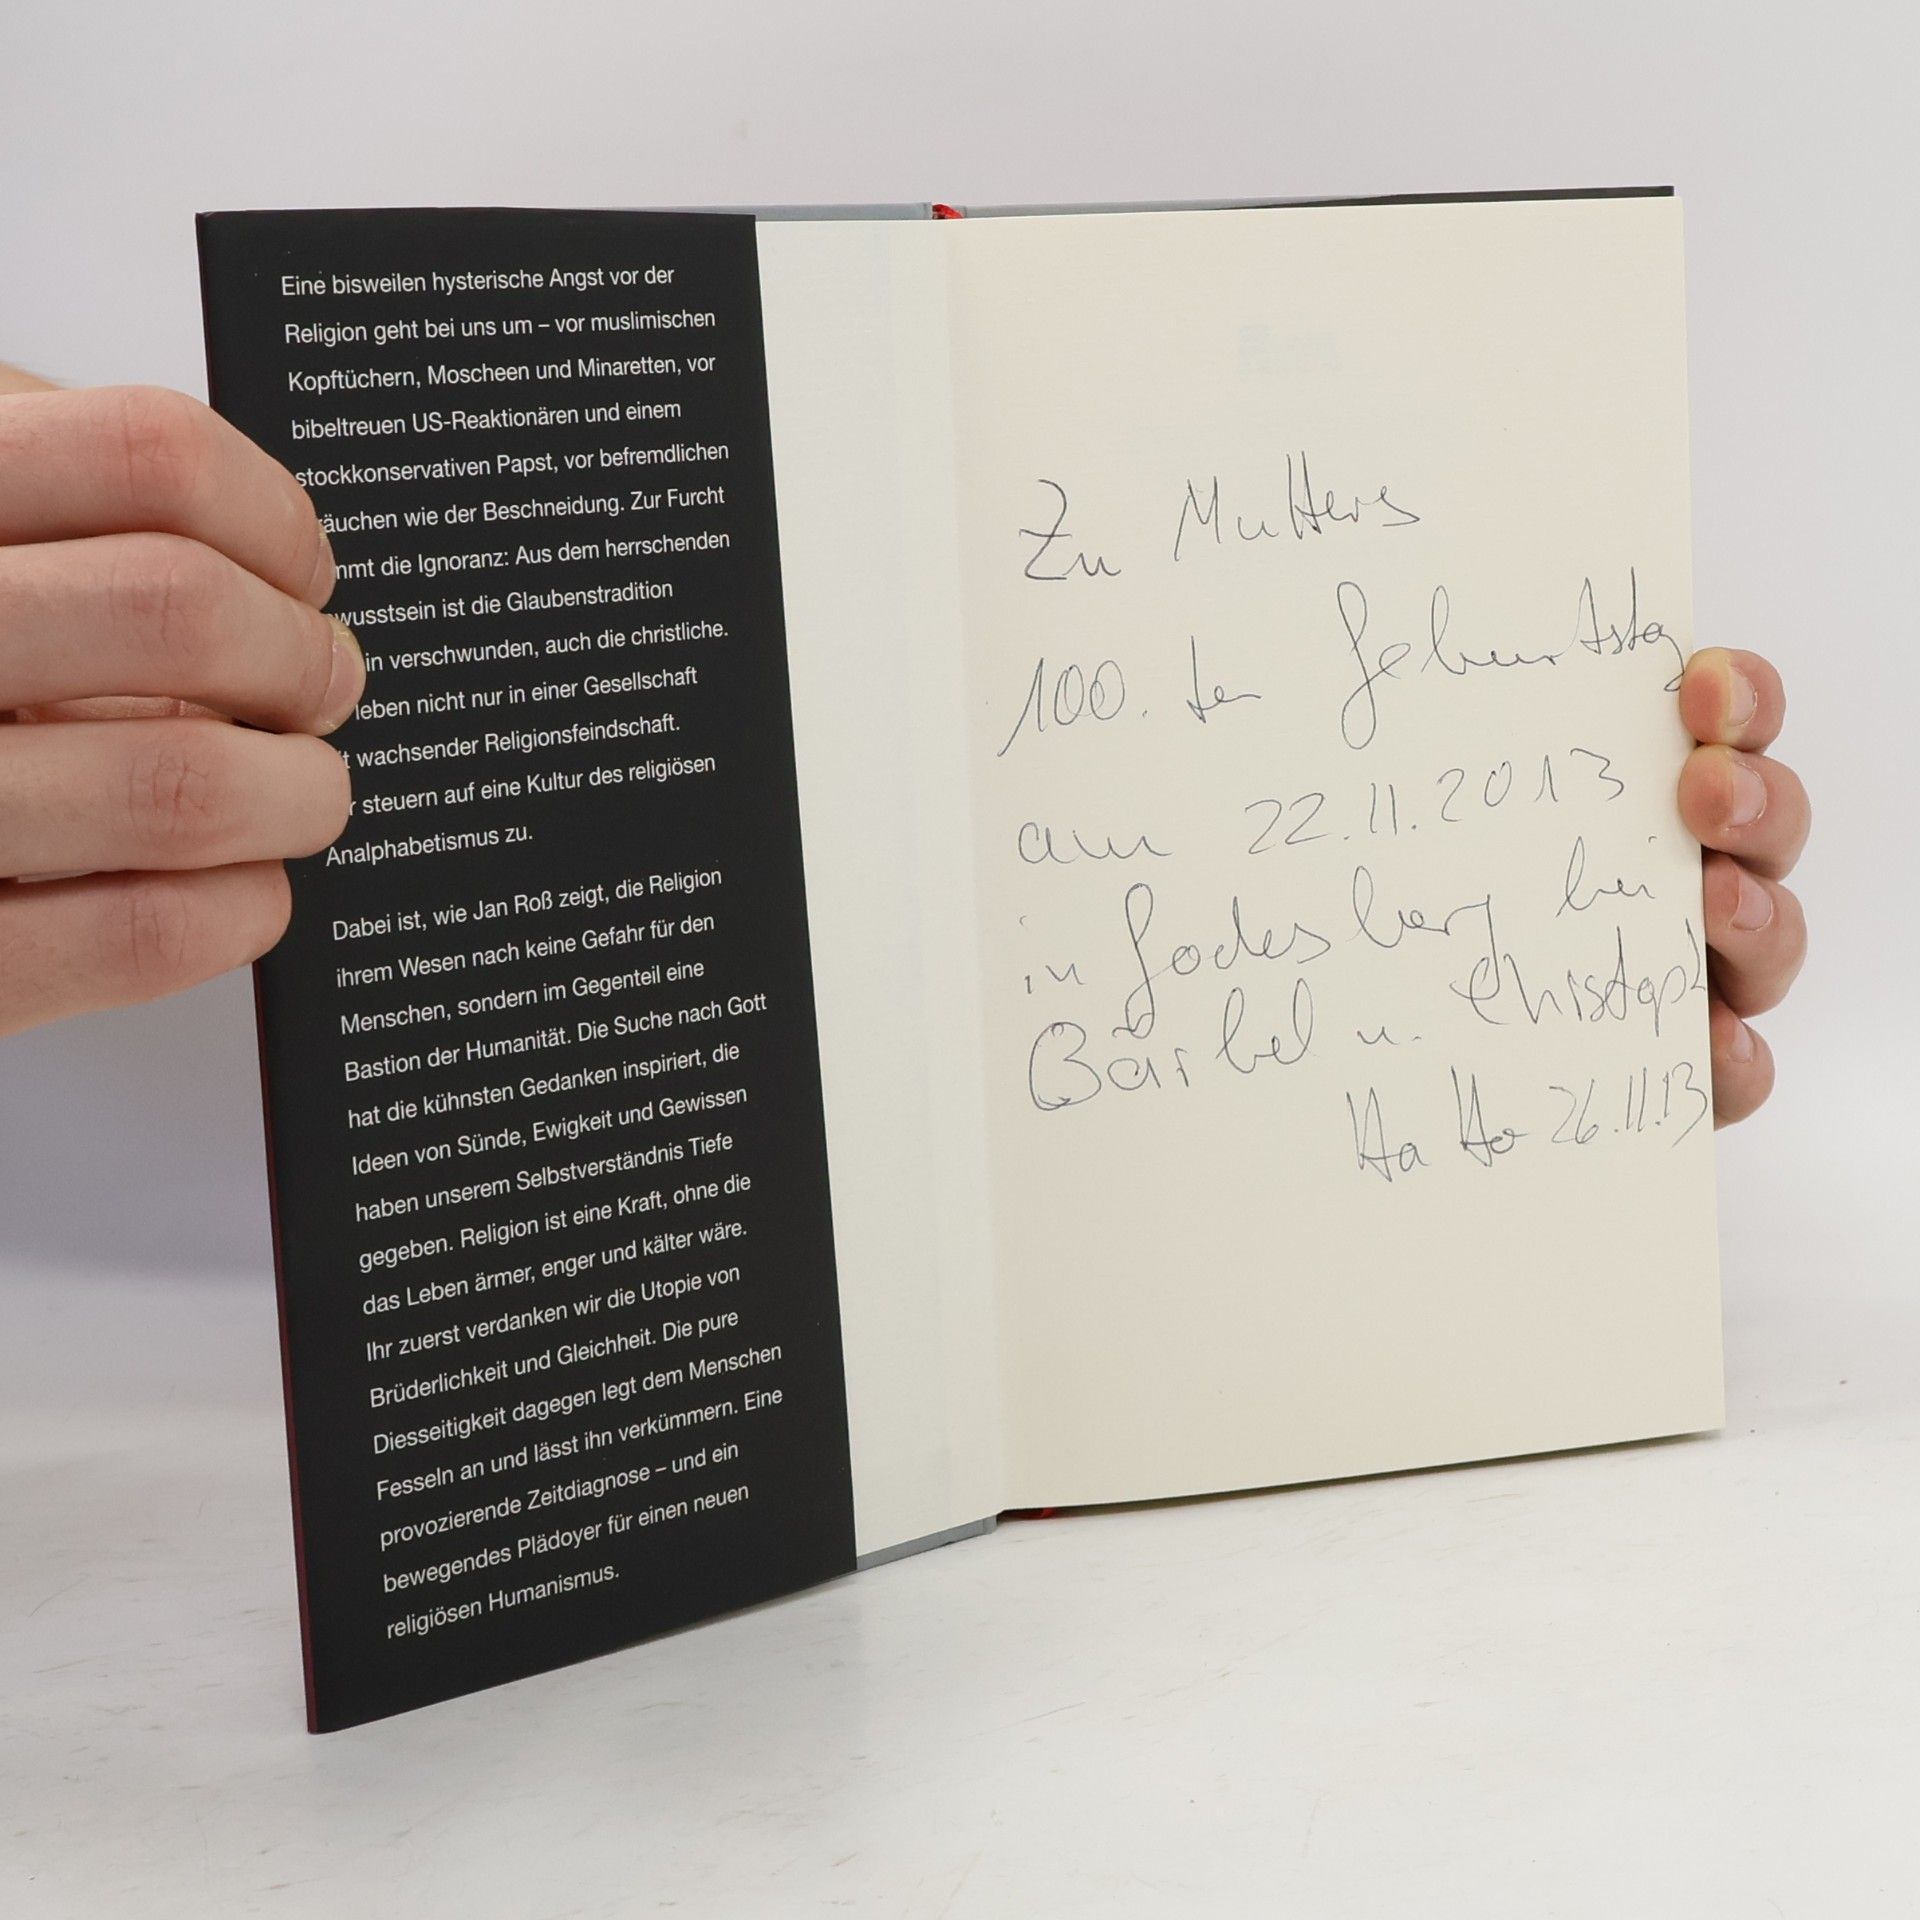 Eine bisweilen hysterische Angst vor der
Religion geht bei uns um – vor muslimischen
Kopftüchern, Moscheen und Minaretten, vor
bibeltreuen US-Reaktionären und einem
stockkonservativen Papst, vor befremdlichen
äuchen wie der Beschneidung. Zur Furcht
mmt die Ignoranz: Aus dem herrschenden
wusstsein ist die Glaubenstradition
in verschwunden, auch die christliche.
leben nicht nur in einer Gesellschaft
t wachsender Religionsfeindschaft.
r steuern auf eine Kultur des religiösen
Analphabetismus zu.
Dabei ist, wie Jan Roß zeigt, die Religion
ihrem Wesen nach keine Gefahr für den
Menschen, sondern im Gegenteil eine
Bastion der Humanität. Die Suche nach Gott
hat die kühnsten Gedanken inspiriert, die
Ideen von Sünde, Ewigkeit und Gewissen
haben unserem Selbstverständnis Tiefe
gegeben. Religion ist eine Kraft, ohne die
das Leben ärmer, enger und kälter wäre.
Ihr zuerst verdanken wir die Utopie von
Brüderlichkeit und Gleichheit. Die pure
Diesseitigkeit dagegen legt dem Menschen
Fesseln an und lässt ihn verkümmern. Eine
provozierende Zeitdiagnose – und ein
bewegendes Plädoyer für einen neuen
religiösen Humanismus.
Zu Mutters
100. ten Geburtstag
am 22.11.2013
in Godesberg bei
Bärbel u. Christoph
Ha Ho 26.11.13